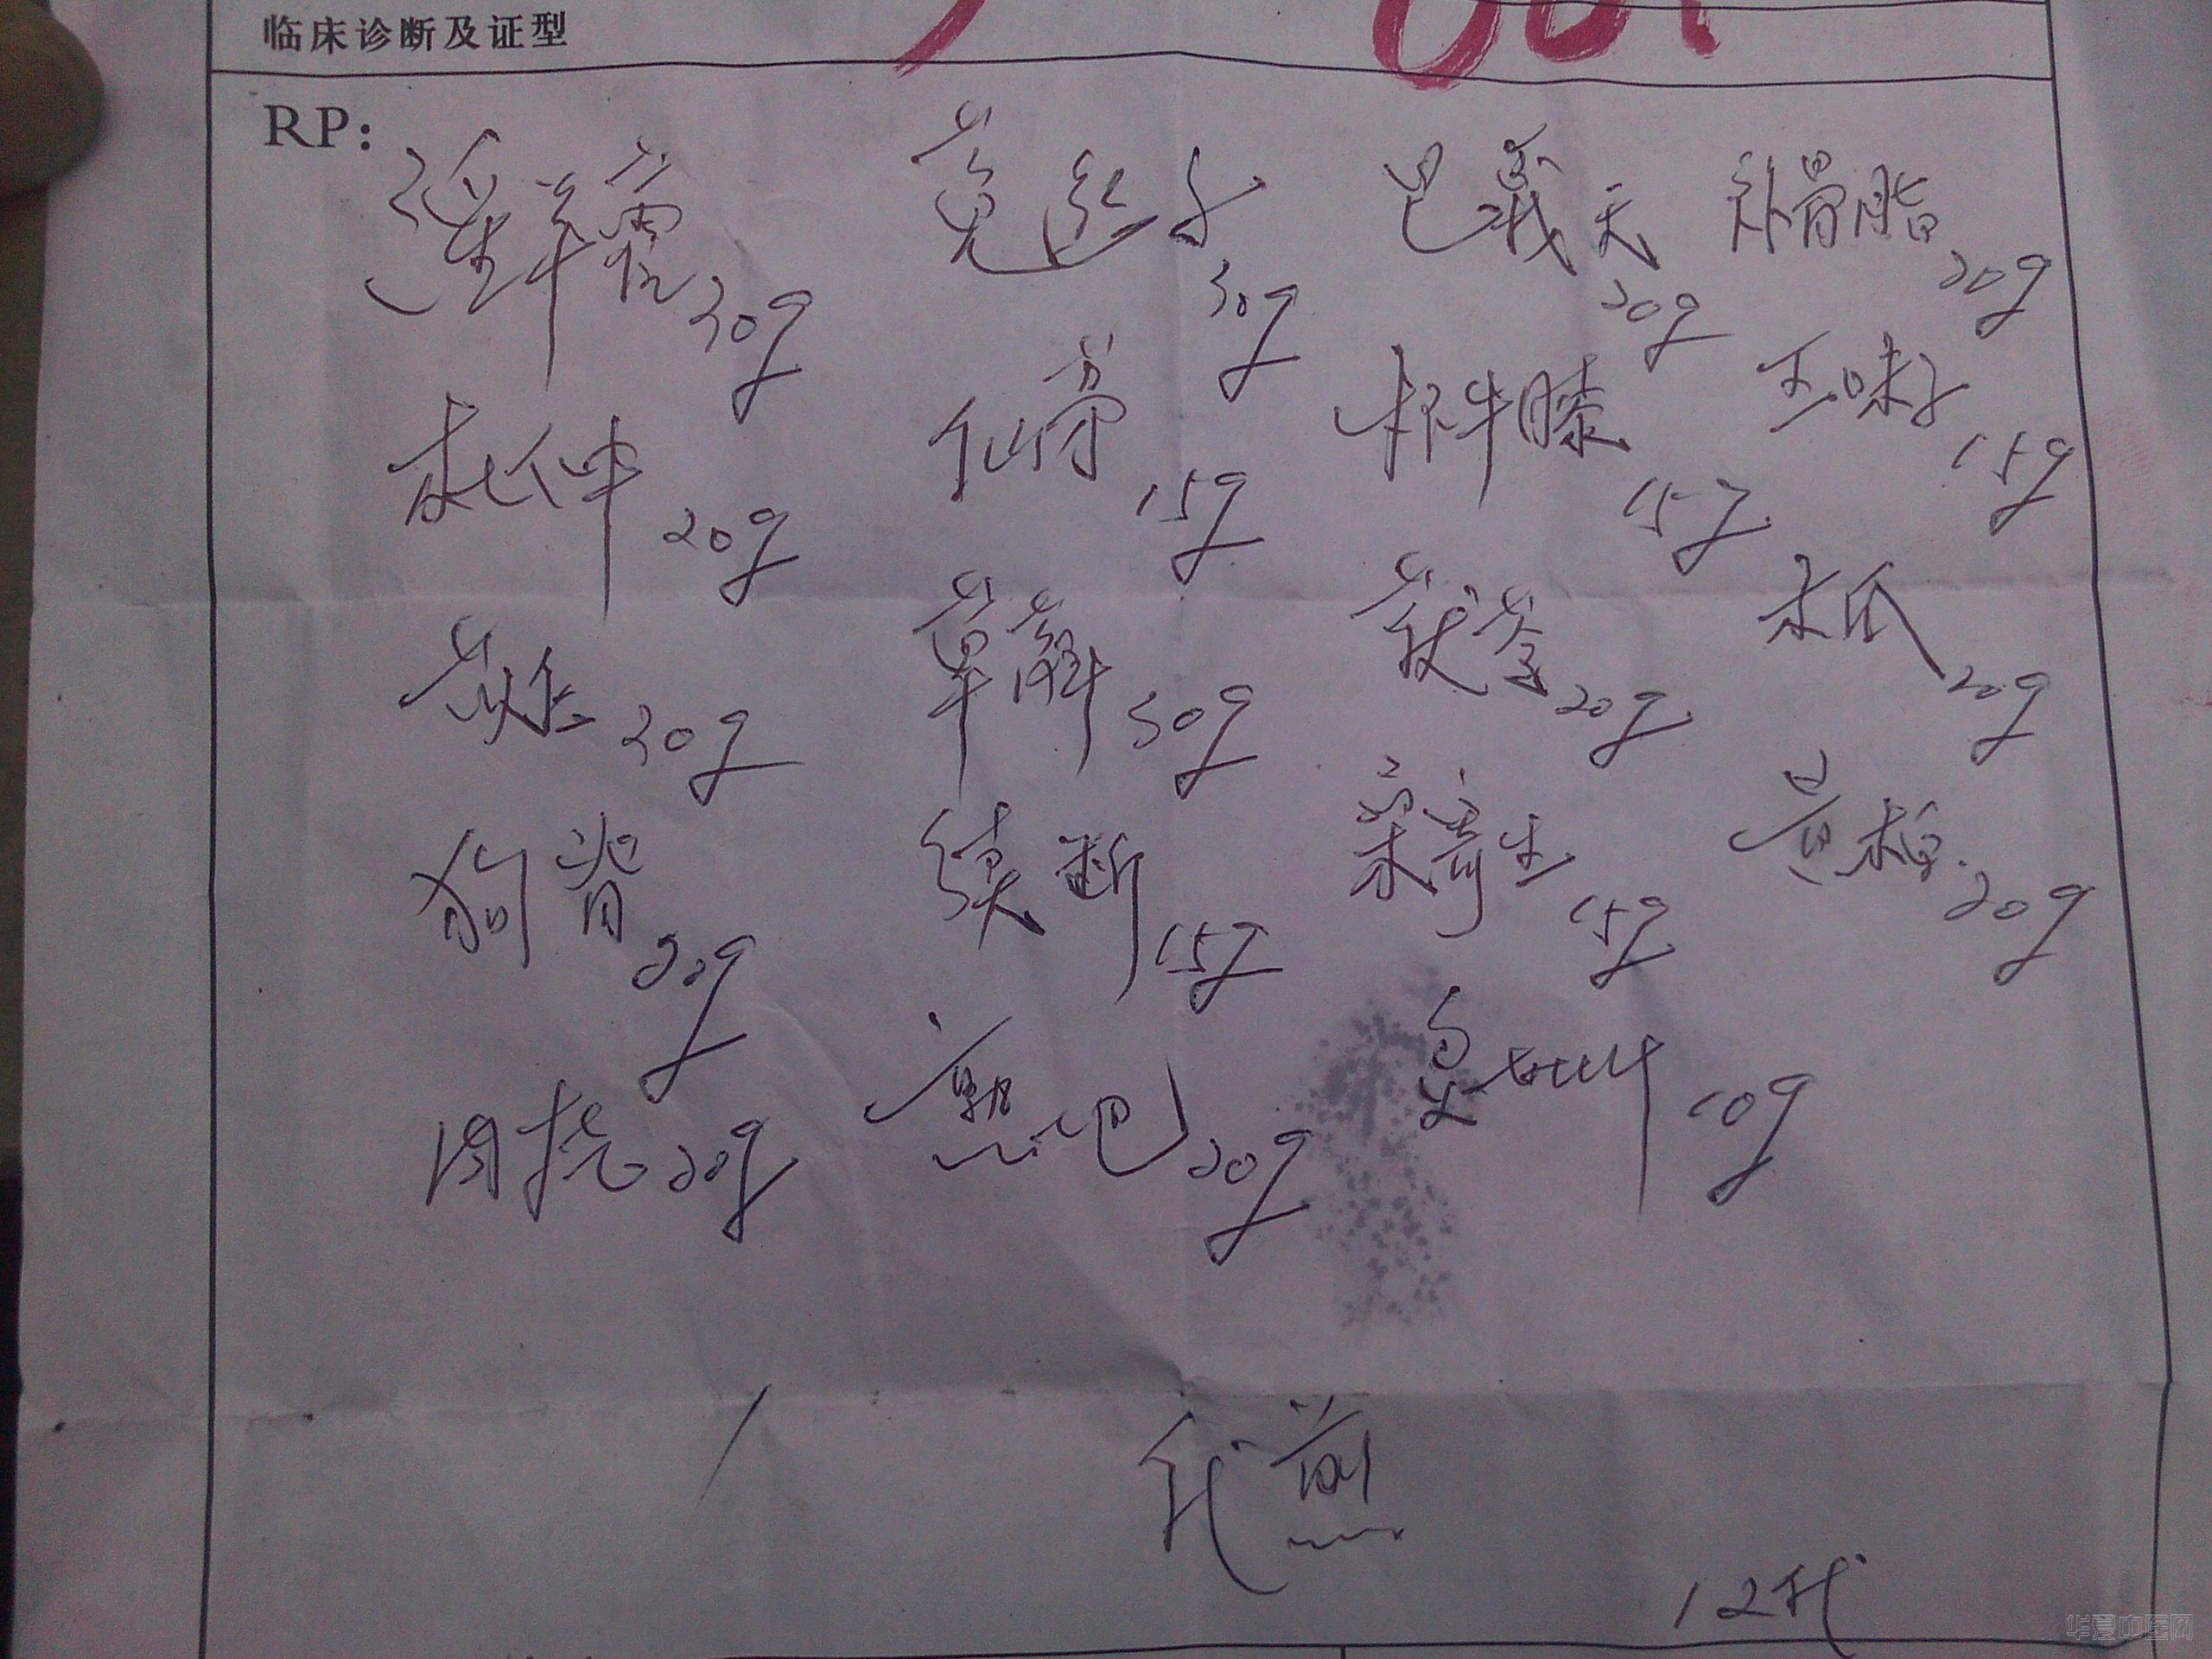 临床诊断及证型
RP:
淫羊藿30g 菟丝子30g 巴戟天20g 补骨脂20g
杜仲20g 仙茅15g 怀牛膝15g 五味子15g
30g 萆薢30g 茯苓20g 木瓜20g
狗脊20g 续断15g 桑寄生15g 黄柏20g
20g 20g 10g
代煎
12代
华夏中医网